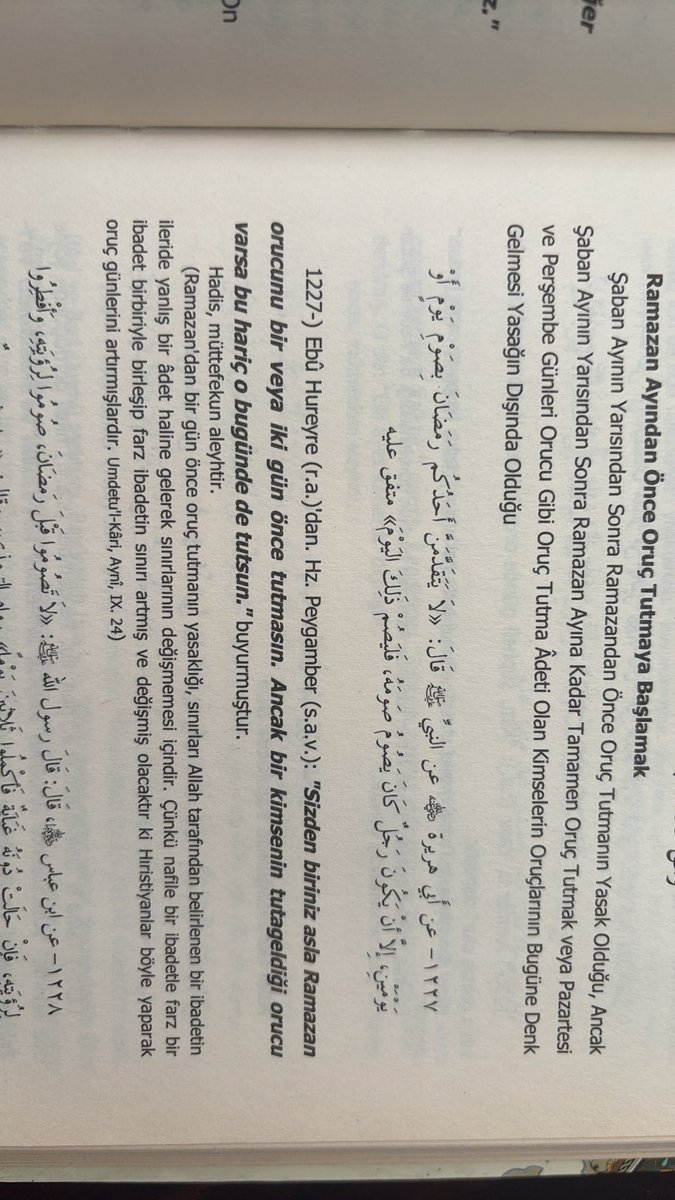 z."
ğer
On
Ramazan Ayından Önce Oruç Tutmaya Başlamak
Şaban Ayının Yarısından Sonra Ramazandan Önce Oruç Tutmanın Yasak Olduğu, Ancak
Şaban Ayının Yarısından Sonra Ramazan Ayına Kadar Tamamen Oruç Tutmak veya Pazartesi
ve Perşembe Günleri Orucu Gibi Oruç Tutma Âdeti Olan Kimselerin Oruçlarının Bugüne Denk
Gelmesi Yasağın Dışında Olduğu
١٢٢٧- عن أَبي هريرة ﷺ عن النبيِّ ﷺ قَالَ: «لاَ يَتَقَدَّمَنَّ أَحَدُكُم رَمَضَانَ بِصَوْمِ يَوْمٍ أَوْ
يَوْمَيْنِ، إِلاَّ أَنْ يَكُونَ رَجُلٌ كَانَ يَصُومُ صَومَهُ، فَليَصُمْ ذَلِكَ اليَوْمَ» متفق عليه
1227-) Ebû Hureyre (r.a.)'dan. Hz. Peygamber (s.a.v.): "Sizden biriniz asla Ramazan
orucunu bir veya iki gün önce tutmasın. Ancak bir kimsenin tutageldiği orucu
varsa bu hariç o bugünde de tutsun." buyurmuştur.
Hadis, müttefekun aleyhtir.
(Ramazan'dan bir gün önce oruç tutmanın yasaklığı, sınırları Allah tarafından belirlenen bir ibadetin
ileride yanlış bir âdet haline gelerek sınırlarının değişmemesi içindir. Çünkü nafile bir ibadetle farz bir
ibadet birbiriyle birleşip farz ibadetin sınırı artmış ve değişmiş olacaktır ki Hıristiyanlar böyle yaparak
oruç günlerini artırmışlardır. Umdetu'l-Kâri, Aynî, IX. 24)
١٢٢٨- عن ابن عباس ﷺ، قَالَ: قَالَ رسول الله ﷺ: «لاَ تَصُومُوا قَبْلَ رَمَضَانَ، صُومُوا لِرُؤيَتِهِ، وَأَفْطِرُوا
لِرُؤيَتِهِ، فَإِنْ حَالَتْ دُونَهُ غَيَايَةٌ فَأَكْمِلُوا ثَلاَثِينَ يَوْماً»